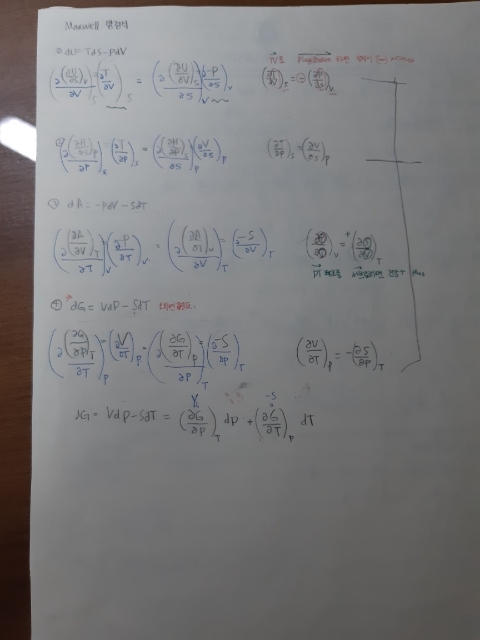 Maxwell 방정식
① dU = TdS - PdV
(∂(∂U/∂S)_V/∂V)_S = (∂T/∂V)_S = (∂(∂U/∂V)_S/∂S)_V (∂-P/∂S)_V (∂T/∂V)_S = ⊖(∂P/∂S)_V
② (∂(∂H/∂S)_P/∂P)_S (∂T/∂P)_S = (∂(∂H/∂P)_S/∂S)_P (∂V/∂S)_P (∂T/∂P)_S = (∂V/∂S)_P
③ dA = -PdV - SdT
(∂(∂A/∂V)_T/∂T)_V (∂-P/∂T)_V = (∂(∂A/∂T)_V/∂V)_T = (∂-S/∂V)_T
④ dG = VdP - SdT
(∂(∂G/∂P)_T/∂T)_P = (∂V/∂T)_P = (∂(∂G/∂T)_P/∂P)_T = (∂-S/∂P)_T (∂V/∂T)_P = -(∂S/∂P)_T
V -S
dG = VdP - SdT = (∂G/∂P)_T dP + (∂G/∂T)_P dT